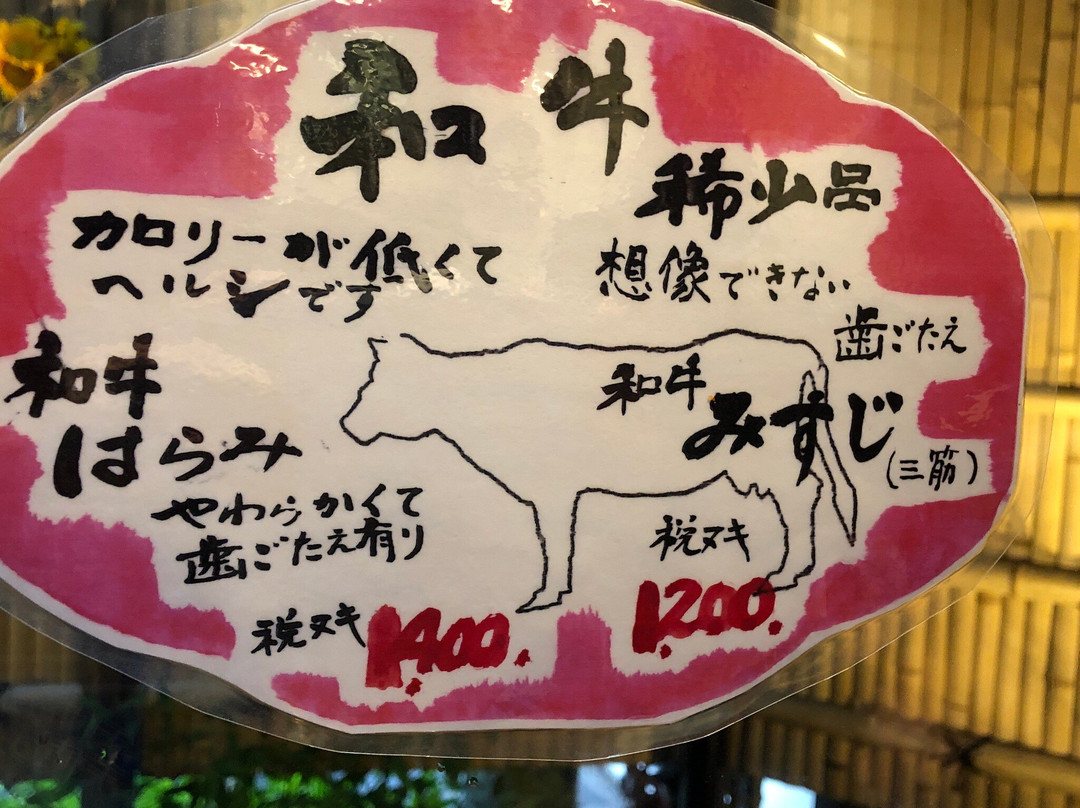 和牛
カロリーが低くて
ヘルシーです
和牛
はらみ
やわらかくて
歯ごたえ有り
税ヌキ 1,400.
稀少品
想像できない
歯ごたえ
和牛
みすじ
(三筋)
税ヌキ
1,200.